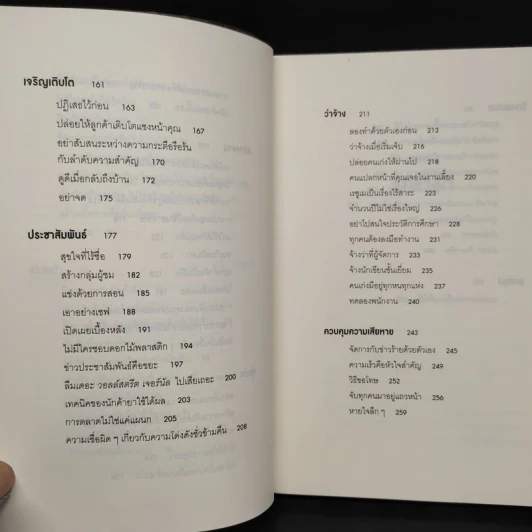 เจริญเติบโต 161
ปฏิเสธไว้ก่อน 163
ปล่อยให้ลูกค้าเติบโตแซงหน้าคุณ 167
อย่าสับสนระหว่างความกระตือรือร้น
กับลำดับความสำคัญ 170
ดูดีเมื่อกลับถึงบ้าน 172
อย่าจด 175
ประชาสัมพันธ์ 177
สุขใจที่ไร้ชื่อ 179
สร้างกลุ่มผู้ชม 182
แข่งด้วยการสอน 185
เอาอย่างเชฟ 188
เปิดเผยเบื้องหลัง 191
ไม่มีใครชอบดอกไม้พลาสติก 194
ข่าวประชาสัมพันธ์คือขยะ 197
ลืมเดอะ วอลล์สตรีต เจอร์นัล ไปเสียเถอะ 200
เทคนิคของนักค้ายาใช้ได้ผล 203
การตลาดไม่ใช่แค่แผนก 205
ความเชื่อผิด ๆ เกี่ยวกับความโด่งดังชั่วข้ามคืน 208
ว่าจ้าง 211
ลองทำด้วยตัวเองก่อน 213
ว่าจ้างเมื่อเริ่มเจ็บ 216
ปล่อยคนเก่งให้ผ่านไป 218
คนแปลกหน้าที่คุณเจอในงานเลี้ยง 220
เรซูเมเป็นเรื่องไร้สาระ 223
จำนวนปีไม่ใช่เรื่องใหญ่ 226
อย่าไปสนใจประวัติการศึกษา 228
ทุกคนต้องลงมือทำงาน 231
จ้างว่าที่ผู้จัดการ 233
จ้างนักเขียนชั้นเยี่ยม 235
คนเก่งมีอยู่ทุกหนทุกแห่ง 237
ทดลองพนักงาน 240
ควบคุมความเสียหาย 243
จัดการกับข่าวร้ายด้วยตัวเอง 245
ความเร็วคือหัวใจสำคัญ 249
วิธีขอโทษ 252
จับทุกคนมาอยู่แถวหน้า 256
หายใจลึก ๆ 259